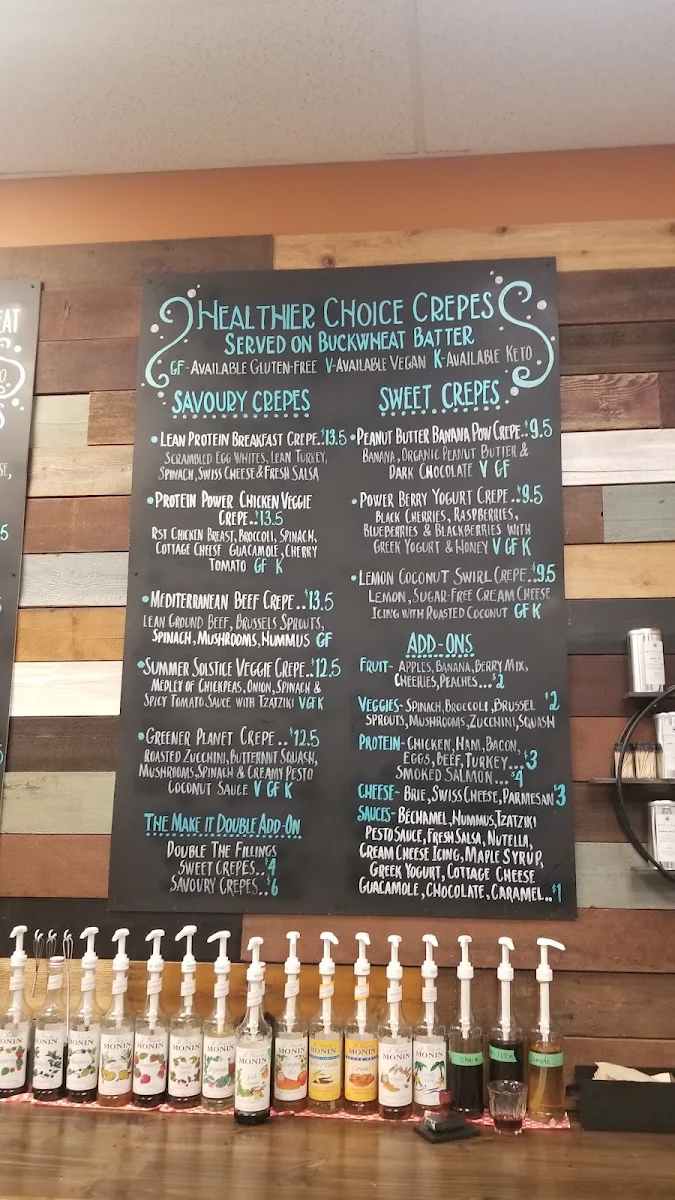 EAT
HEALTHIER CHOICE CREPES
SERVED ON BUCKWHEAT BATTER
GF-AVAILABLE GLUTEN-FREE V-AVAILABLE VEGAN K-AVAILABLE KETO
SAVOURY CREPES
• LEAN PROTEIN BREAKFAST CREPE..$13.5
SCRAMBLED EGG WHITES, LEAN TURKEY,
SPINACH, SWISS CHEESE & FRESH SALSA
• PROTEIN POWER CHICKEN VEGGIE
CREPE..$13.5
RST CHICKEN BREAST, BROCCOLI, SPINACH,
COTTAGE CHEESE GUACAMOLE, CHERRY
TOMATO GF K
• MEDITERRANEAN BEEF CREPE..$13.5
LEAN GROUND BEEF, BRUSSELS SPROUTS,
SPINACH, MUSHROOMS, HUMMUS GF
• SUMMER SOLSTICE VEGGIE CREPE..$12.5
MEDLEY OF CHICKPEAS, ONION, SPINACH &
SPICY TOMATO SAUCE WITH TZATZIKI V GF K
• GREENER PLANET CREPE..$12.5
ROASTED ZUCCHINI, BUTTERNUT SQUASH,
MUSHROOMS, SPINACH & CREAMY PESTO
COCONUT SAUCE V GF K
THE MAKE IT DOUBLE ADD-ON
DOUBLE THE FILLINGS
SWEET CREPES..$4
SAVOURY CREPES..$6
SWEET CREPES
• PEANUT BUTTER BANANA POW CREPE..$9.5
BANANA, ORGANIC PEANUT BUTTER &
DARK CHOCOLATE V GF
• POWER BERRY YOGURT CREPE..$9.5
BLACK CHERRIES, RASPBERRIES,
BLUEBERRIES & BLACKBERRIES WITH
GREEK YOGURT & HONEY V GF K
• LEMON COCONUT SWIRL CREPE..$9.5
LEMON, SUGAR-FREE CREAM CHEESE
ICING WITH ROASTED COCONUT GF K
ADD-ONS
FRUIT- APPLES, BANANA, BERRY MIX,
CHERRIES, PEACHES...$2
VEGGIES- SPINACH, BROCCOLI, BRUSSEL $2
SPROUTS, MUSHROOMS, ZUCCHINI, SQUASH
PROTEIN- CHICKEN, HAM, BACON,
EGGS, BEEF, TURKEY...$3
SMOKED SALMON...$4
CHEESE- BRIE, SWISS CHEESE, PARMESAN $3
SAUCES- BECHAMEL, HUMMUS, TZATZIKI
PESTO SAUCE, FRESH SALSA, NUTELLA,
CREAM CHEESE ICING, MAPLE SYRUP,
GREEK YOGURT, COTTAGE CHEESE
GUACAMOLE, CHOCOLATE, CARAMEL..$1
MONIN
MONIN
MONIN
MONIN
MONIN
MONIN
MONIN
MONIN
MONIN
MONIN
MONIN
MONIN
MONIN
CHAI